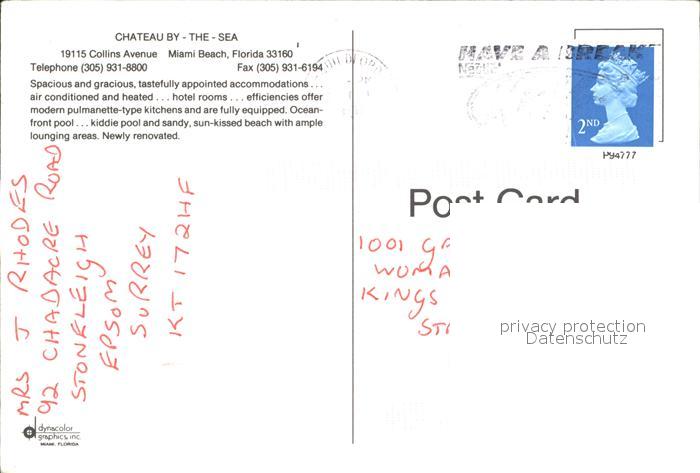 CHATEAU BY - THE - SEA
19115 Collins Avenue Miami Beach, Florida 33160
Telephone (305) 931-8800 Fax (305) 931-6194
Spacious and gracious, tastefully appointed accommodations . . .
air conditioned and heated . . . hotel rooms . . . efficiencies offer
modern pulmanette-type kitchens and are fully equipped. Ocean-
front pool . . . kiddie pool and sandy, sun-kissed beach with ample
lounging areas. Newly renovated.
HAVE A BREAK
2ND
P94777
Post Card
MRS J RHODES
92 CHADACRE ROAD
STONELEIGH
EPSOM
SURREY
KT 172HF
1001 GA
WOMA
KINGS
ST
privacy protection
Datenschutz
dynacolor
graphics, inc.
MIAMI, FLORIDA